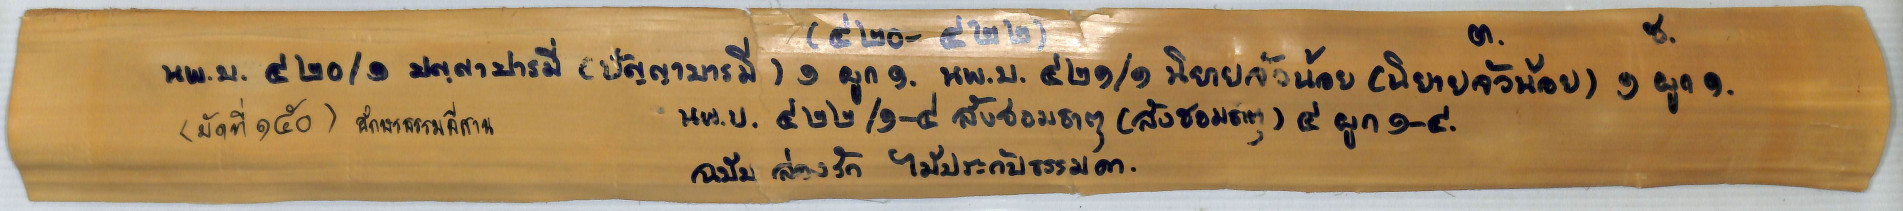 (๔๒๐-๔๒๒)
ต. ช.
นพ.บ. ๔๒๐/๑ ปัสสาปารมี (ปัญญาบารมี) ๑ ผูก ๑. นพ.บ. ๔๒๑/๑ นิยายจัวน้อย (นิยายจัวน้อย) ๑ ผูก ๑.
(มัดที่ ๑๕๐) อักษรธรรมอีสาน นพ.บ. ๔๒๒/๑-๔ สังฮอมธาตุ (สังฮอมธาตุ) ๔ ผูก ๑-๔.
ฉบับ ล่องรัก ไม้ประกับธรรมดา.